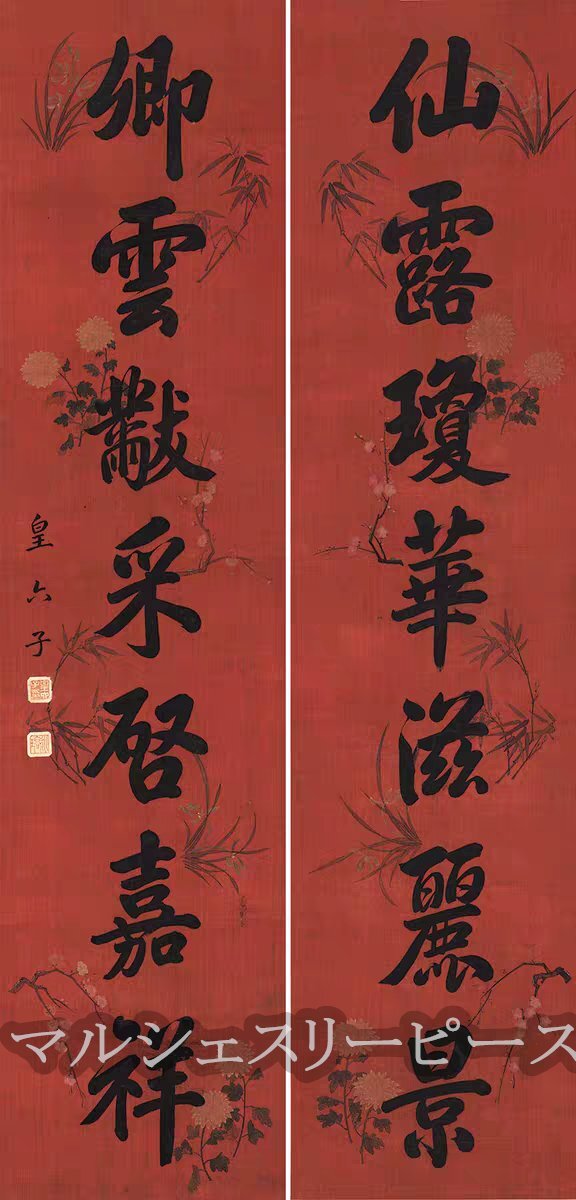 仙露瓊華滋麗景
卿雲黻采啓嘉祥
皇六子
マルシェスリーピース